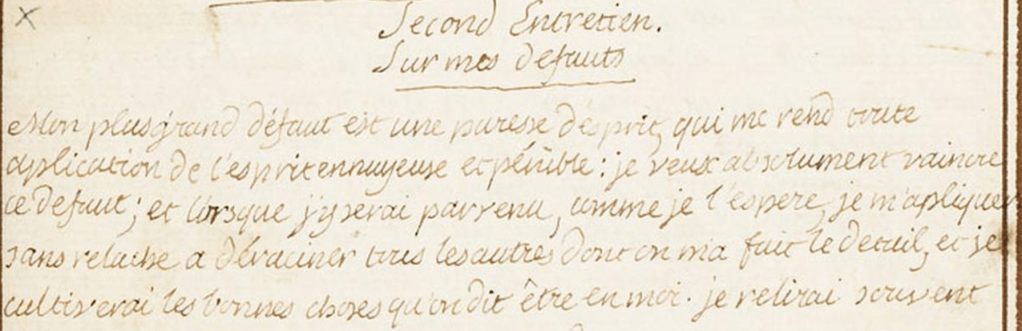 Second Entretien.
Sur mes defauts
Mon plus grand défaut est une paresse d'esprit, qui me rend toute
application de l'esprit ennuyeuse et pénible : je veux absolument vaincre
ce defaut; et lorsque j'y serai parvenu, comme je l'espere, je m'apliquer
sans relache a déraciner tous les autres dont on m'a fait le detail, et je
cultiverai les bonnes choses qu'on dit être en moi. je relirai souvent